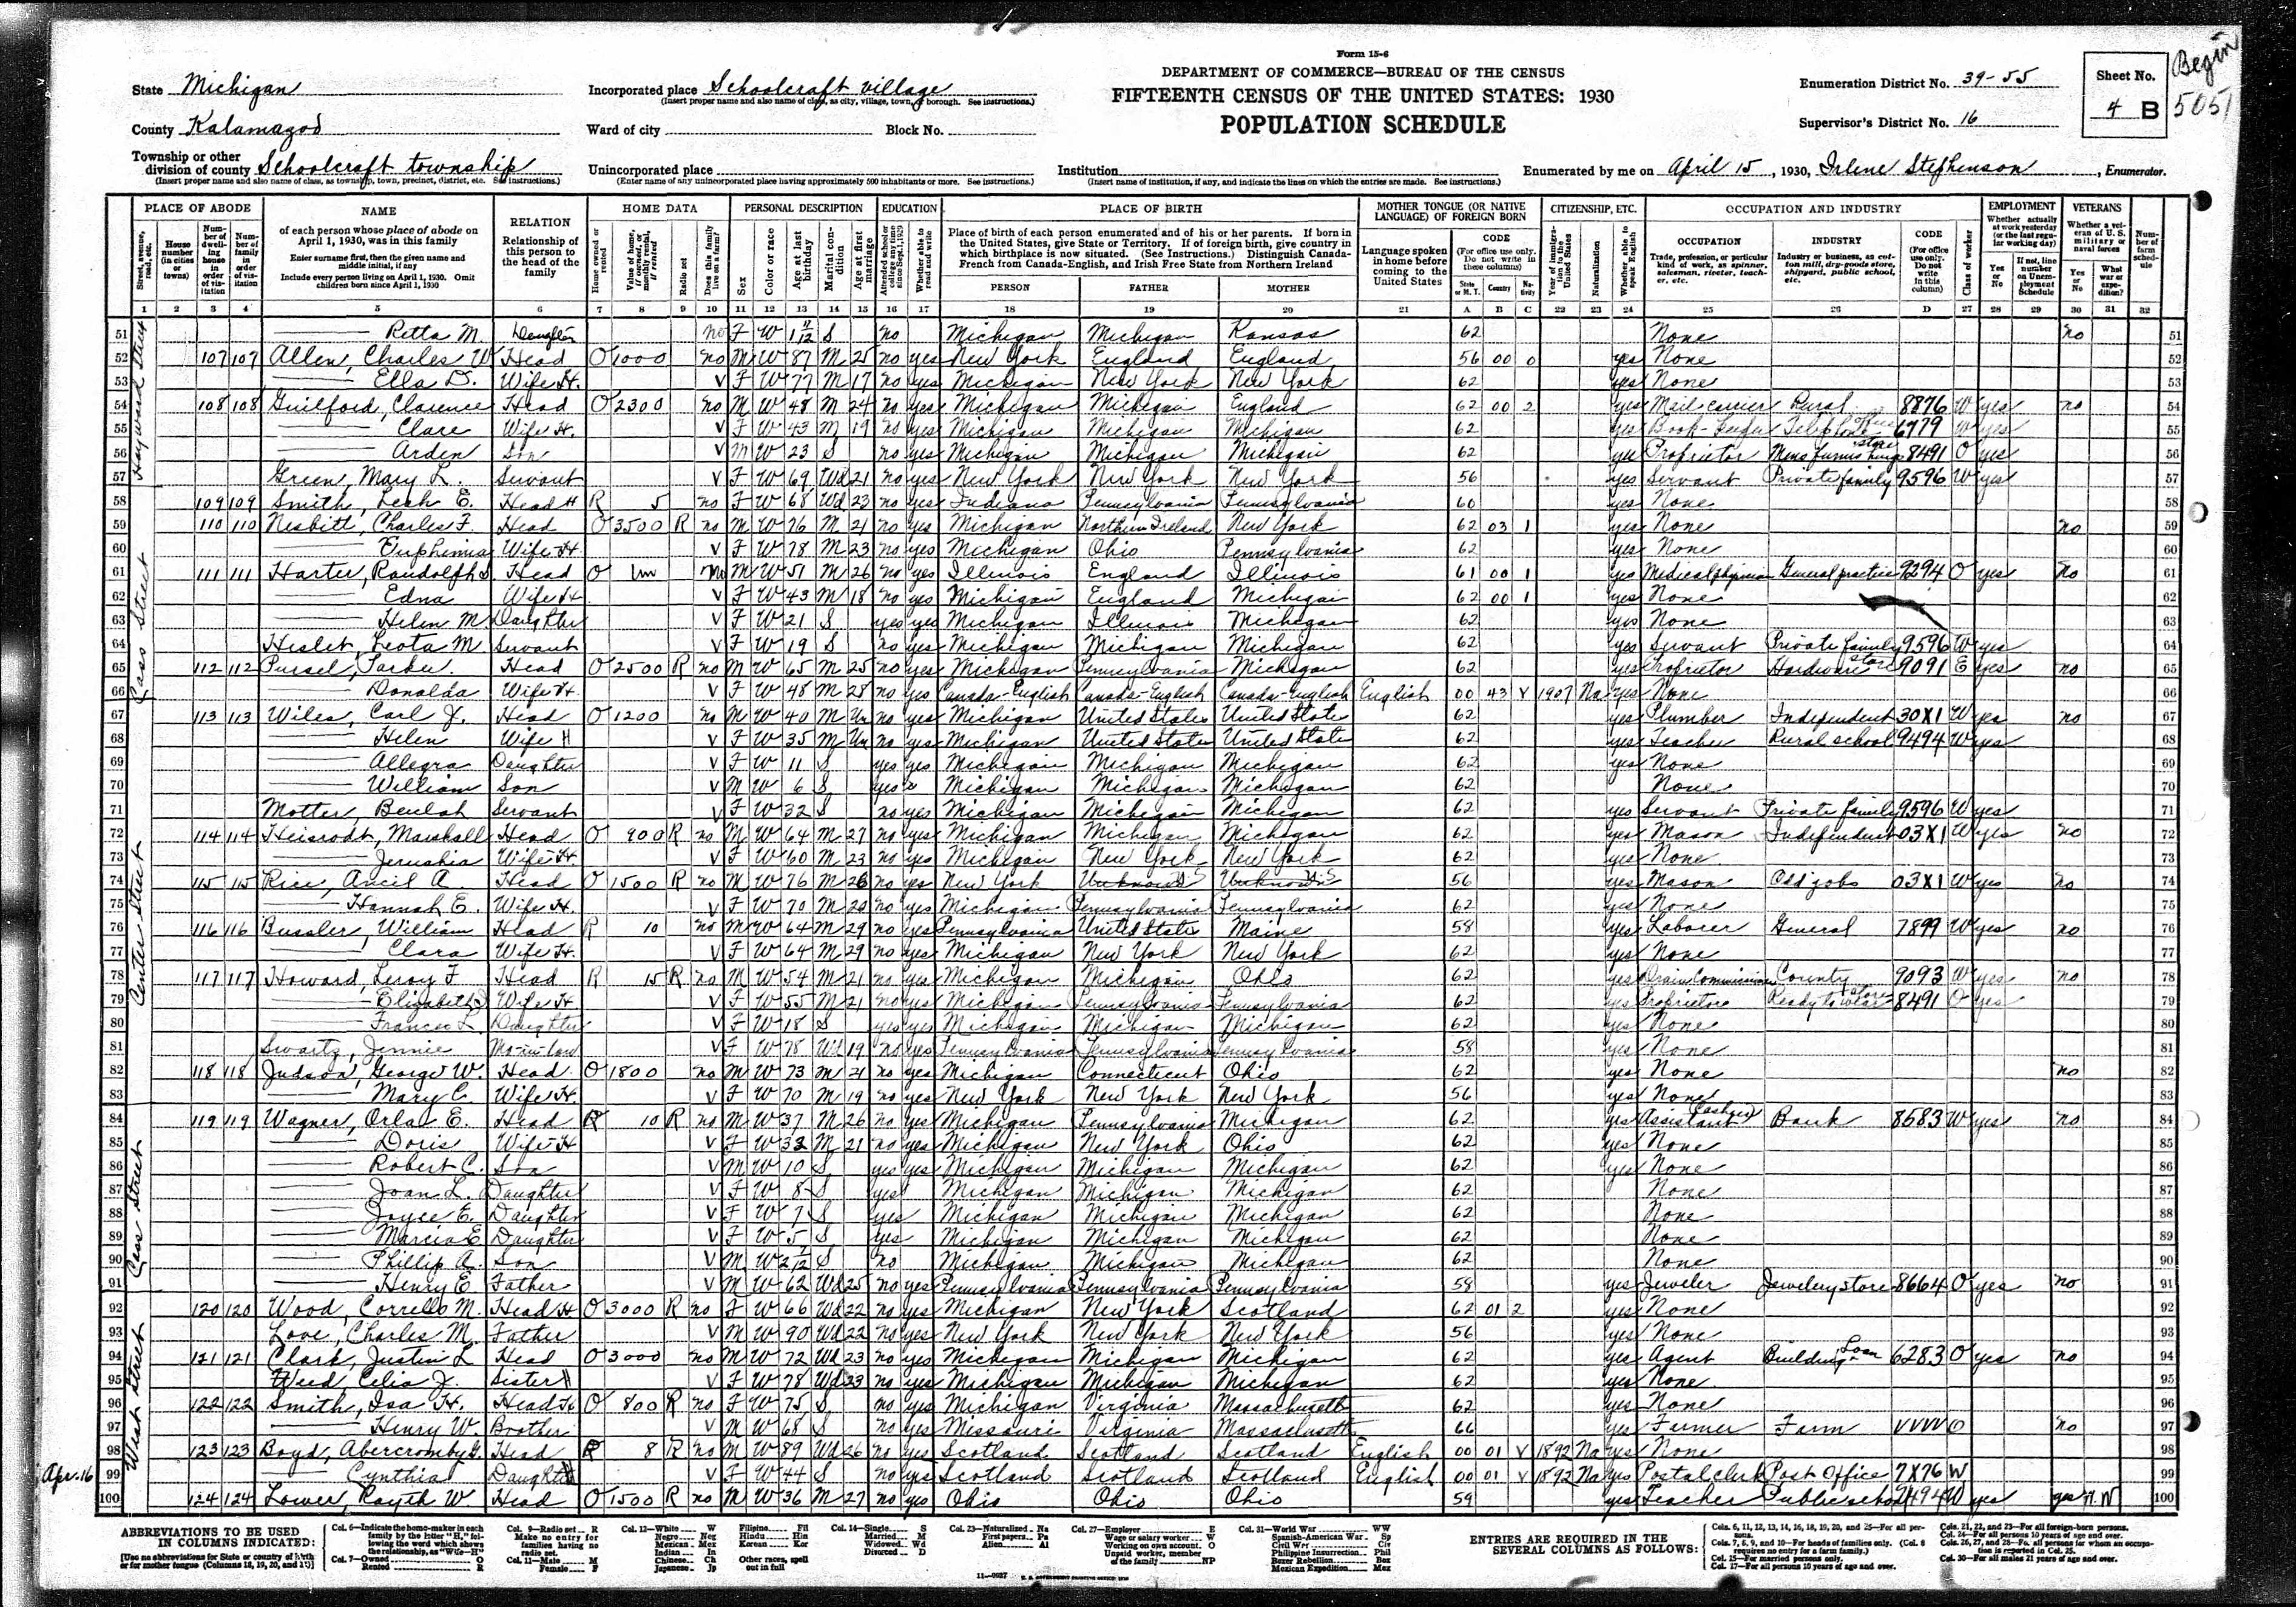 Form 15-6
DEPARTMENT OF COMMERCE—BUREAU OF THE CENSUS
FIFTEENTH CENSUS OF THE UNITED STATES: 1930
POPULATION SCHEDULE
Begin
5051
State Michigan
Incorporated place Schoolcraft village
(Insert proper name and also name of class, as city, village, town, or borough. See instructions.)
Enumeration District No. 39-55
Sheet No.
4 B
County Kalamazoo
Ward of city Block No.
Supervisor's District No. 16
Township or other division of county Schoolcraft township
(Insert proper name and also name of class, as township, town, precinct, district, etc. See instructions.)
Unincorporated place
(Enter name of any unincorporated place having approximately 500 inhabitants or more. See instructions.)
Institution
(Insert name of institution, if any, and indicate the lines on which the entries are made. See instructions.)
Enumerated by me on April 15, 1930, Irlene Stephenson, Enumerator.
PLACE OF ABODE NAME RELATION HOME DATA PERSONAL DESCRIPTION EDUCATION PLACE OF BIRTH MOTHER TONGUE (OR NATIVE LANGUAGE) OF FOREIGN BORN CITIZENSHIP, ETC. OCCUPATION AND INDUSTRY EMPLOYMENT VETERANS
of each person whose place of abode on April 1, 1930, was in this family
Enter surname first, then the given name and middle initial, if any
Include every person living on April 1, 1930. Omit children born since April 1, 1930
Relationship of this person to the head of the family
Place of birth of each person enumerated and of his or her parents. If born in the United States, give State or Territory. If of foreign birth, give country in which birthplace is now situated. (See Instructions.) Distinguish Canada-French from Canada-English, and Irish Free State from Northern Ireland
PERSON FATHER MOTHER
Language spoken in home before coming to the United States
OCCUPATION INDUSTRY CODE
1 2 3 4 5 6 7 8 9 10 11 12 13 14 15 16 17 18 19 20 21 A B C 22 23 24 25 26 D 27 28 29 30 31 32
Hayward Street
51 Retta M. Daughter no F W 1 11/12 S no Michigan Michigan Kansas 62 None no 51
52 107 107 Allen, Charles W Head O 1000 no M W 87 M 25 no yes New York England England 56 00 0 yes None 52
53 Ella D. Wife H. V F W 77 M 17 no yes Michigan New York New York 62 yes None 53
54 108 108 Guilford, Clarence Head O 2300 no M W 48 M 24 no yes Michigan Michigan England 62 00 2 yes Mail carrier Rural 8876 W yes no 54
55 Clare Wife H. V F W 43 M 19 no yes Michigan Michigan Michigan 62 yes Book-keeper Telephone office 6779 W yes 55
56 Arden Son V M W 23 S no yes Michigan Michigan Michigan 62 yes Proprietor Mens furnishings store 8491 O yes 56
57 Green, Mary L. Servant V F W 69 Wd 21 no yes New York New York New York 56 yes Servant Private family 9596 W yes 57
58 109 109 Smith, Leah E. Head H R 5 no F W 68 Wd 23 no yes Indiana Pennsylvania Pennsylvania 60 yes None 58
Cass Street
59 110 110 Nesbitt, Charles F. Head O 3500 R no M W 76 M 21 no yes Michigan Northern Ireland New York 62 03 1 yes None no 59
60 Euphemia Wife H V F W 78 M 23 no yes Michigan Ohio Pennsylvania 62 yes None 60
61 111 111 Harter, Randolph S. Head O Un no M W 51 M 26 no yes Illinois England Illinois 61 00 1 yes Medical physician General practice 9294 O yes no 61
62 Edna Wife H V F W 43 M 18 no yes Michigan England Michigan 62 00 1 yes None 62
63 Helen M. Daughter V F W 21 S yes yes Michigan Illinois Michigan 62 yes None 63
64 Heslet, Leota M Servant V F W 19 S no yes Michigan Michigan Michigan 62 yes Servant Private family 9596 W yes 64
65 112 112 Pursel, Parker Head O 2500 R no M W 65 M 25 no yes Michigan Pennsylvania Michigan 62 yes Proprietor Hardware store 9091 E yes no 65
66 Donalda Wife H. V F W 48 M 28 no yes Canada-English Canada-English Canada-English English 00 43 V 1907 Na yes None 66
67 113 113 Wiles, Carl J. Head O 1200 no M W 40 M Un no yes Michigan United States United States 62 yes Plumber Independent 30X1 W yes no 67
68 Helen Wife H V F W 35 M Un no yes Michigan United States United States 62 yes Teacher Rural school 9494 W yes 68
69 Allegra Daughter V F W 11 S yes yes Michigan Michigan Michigan 62 yes None 69
70 William Son V M W 6 S yes Michigan Michigan Michigan 62 None 70
71 Motter, Beulah Servant V F W 32 S no yes Michigan Michigan Michigan 62 yes Servant Private family 9596 W yes 71
Center Street
72 114 114 Heisrodt, Marshall Head O 900 R no M W 64 M 27 no yes Michigan Michigan Michigan 62 yes Mason Independent 03X1 W yes no 72
73 Jerushia Wife H V F W 60 M 23 no yes Michigan New York New York 62 yes None 73
74 115 115 Rice, Ancil A Head O 1500 R no M W 76 M 26 no yes New York Unknown U S Unknown U S 56 yes Mason Odd jobs 03X1 W yes no 74
75 Hannah E. Wife H. V F W 70 M 20 no yes Michigan Pennsylvania Pennsylvania 62 yes None 75
76 116 116 Bussler, William Head R 10 no M W 64 M 29 no yes Pennsylvania United States Maine 58 yes Laborer General 7899 W yes no 76
77 Clara Wife H. V F W 64 M 29 no yes Michigan New York New York 62 yes None 77
78 117 117 Howard, Leroy F Head R 15 R no M W 54 M 21 no yes Michigan Michigan Ohio 62 yes Drain Commissioner County 9093 W yes no 78
79 Elizabeth Wife H V F W 55 M 21 no yes Michigan Pennsylvania Pennsylvania 62 yes Proprietor Ready to wear store 8491 O yes 79
80 Frances L. Daughter V F W 18 S yes yes Michigan Michigan Michigan 62 yes None 80
81 Swartz, Jennie Mo-in-law V F W 78 Wd 19 no yes Pennsylvania Pennsylvania Pennsylvania 58 yes None 81
82 118 118 Judson, George W. Head O 1800 no M W 73 M 21 no yes Michigan Connecticut Ohio 62 yes None no 82
83 Mary C. Wife H. V F W 70 M 19 no yes New York New York New York 56 yes None 83
Cass Street
84 119 119 Wagner, Orla E. Head R 10 R no M W 37 M 26 no yes Michigan Pennsylvania Michigan 62 yes Assistant Cashier Bank 8583 W yes no 84
85 Doris Wife H V F W 32 M 21 no yes Michigan New York Ohio 62 yes None 85
86 Robert C. Son V M W 10 S yes yes Michigan Michigan Michigan 62 yes None 86
87 Joan L. Daughter V F W 8 S yes Michigan Michigan Michigan 62 None 87
88 Joyce E. Daughter V F W 7 S yes Michigan Michigan Michigan 62 None 88
89 Marcia E Daughter V F W 5 S yes Michigan Michigan Michigan 62 None 89
90 Phillip A. Son V M W 2 1/12 S no Michigan Michigan Michigan 62 None 90
91 Henry E. Father V M W 62 Wd 25 no yes Pennsylvania Pennsylvania Pennsylvania 58 yes Jeweler Jewelery store 8664 O yes no 91
West Street
92 120 120 Wood, Corrello M. Head H O 3000 R no F W 66 Wd 22 no yes Michigan New York Scotland 62 01 2 yes None 92
93 Love, Charles M. Father V M W 90 Wd 22 no yes New York New York New York 56 yes None 93
94 121 121 Clark, Justin L Head O 3000 no M W 72 Wd 23 no yes Michigan Michigan Michigan 62 yes Agent Building Loan 6283 O yes no 94
95 Weed Celia J. Sister H V F W 78 Wd 23 no yes Michigan Michigan Michigan 62 yes None 95
96 122 122 Smith, Isa H. Head H O 800 R no F W 75 S no yes Michigan Virginia Massachusetts 62 yes None 96
97 Henry W. Brother V M W 68 S no yes Missouri Virginia Massachusetts 66 yes Farmer Farm VVVV O no 97
98 123 123 Boyd, Abercromby G. Head R 8 R no M W 89 Wd 26 no yes Scotland Scotland Scotland English 00 01 V 1892 Na yes None 98
Apr. 16
99 Cynthia Daughter V F W 44 S no yes Scotland Scotland Scotland English 00 01 V 1892 Na yes Postal clerk Post Office 7X76 W 99
100 124 124 Lower, Rayth W Head O 1500 R no M W 36 M 27 no yes Ohio Ohio Ohio 59 yes Teacher Public school 9494 W yes yes W.W 100
ABBREVIATIONS TO BE USED IN COLUMNS INDICATED:
[Use no abbreviations for State or country of birth or for mother tongue (Columns 18, 19, 20, and 21)]
ENTRIES ARE REQUIRED IN THE SEVERAL COLUMNS AS FOLLOWS: